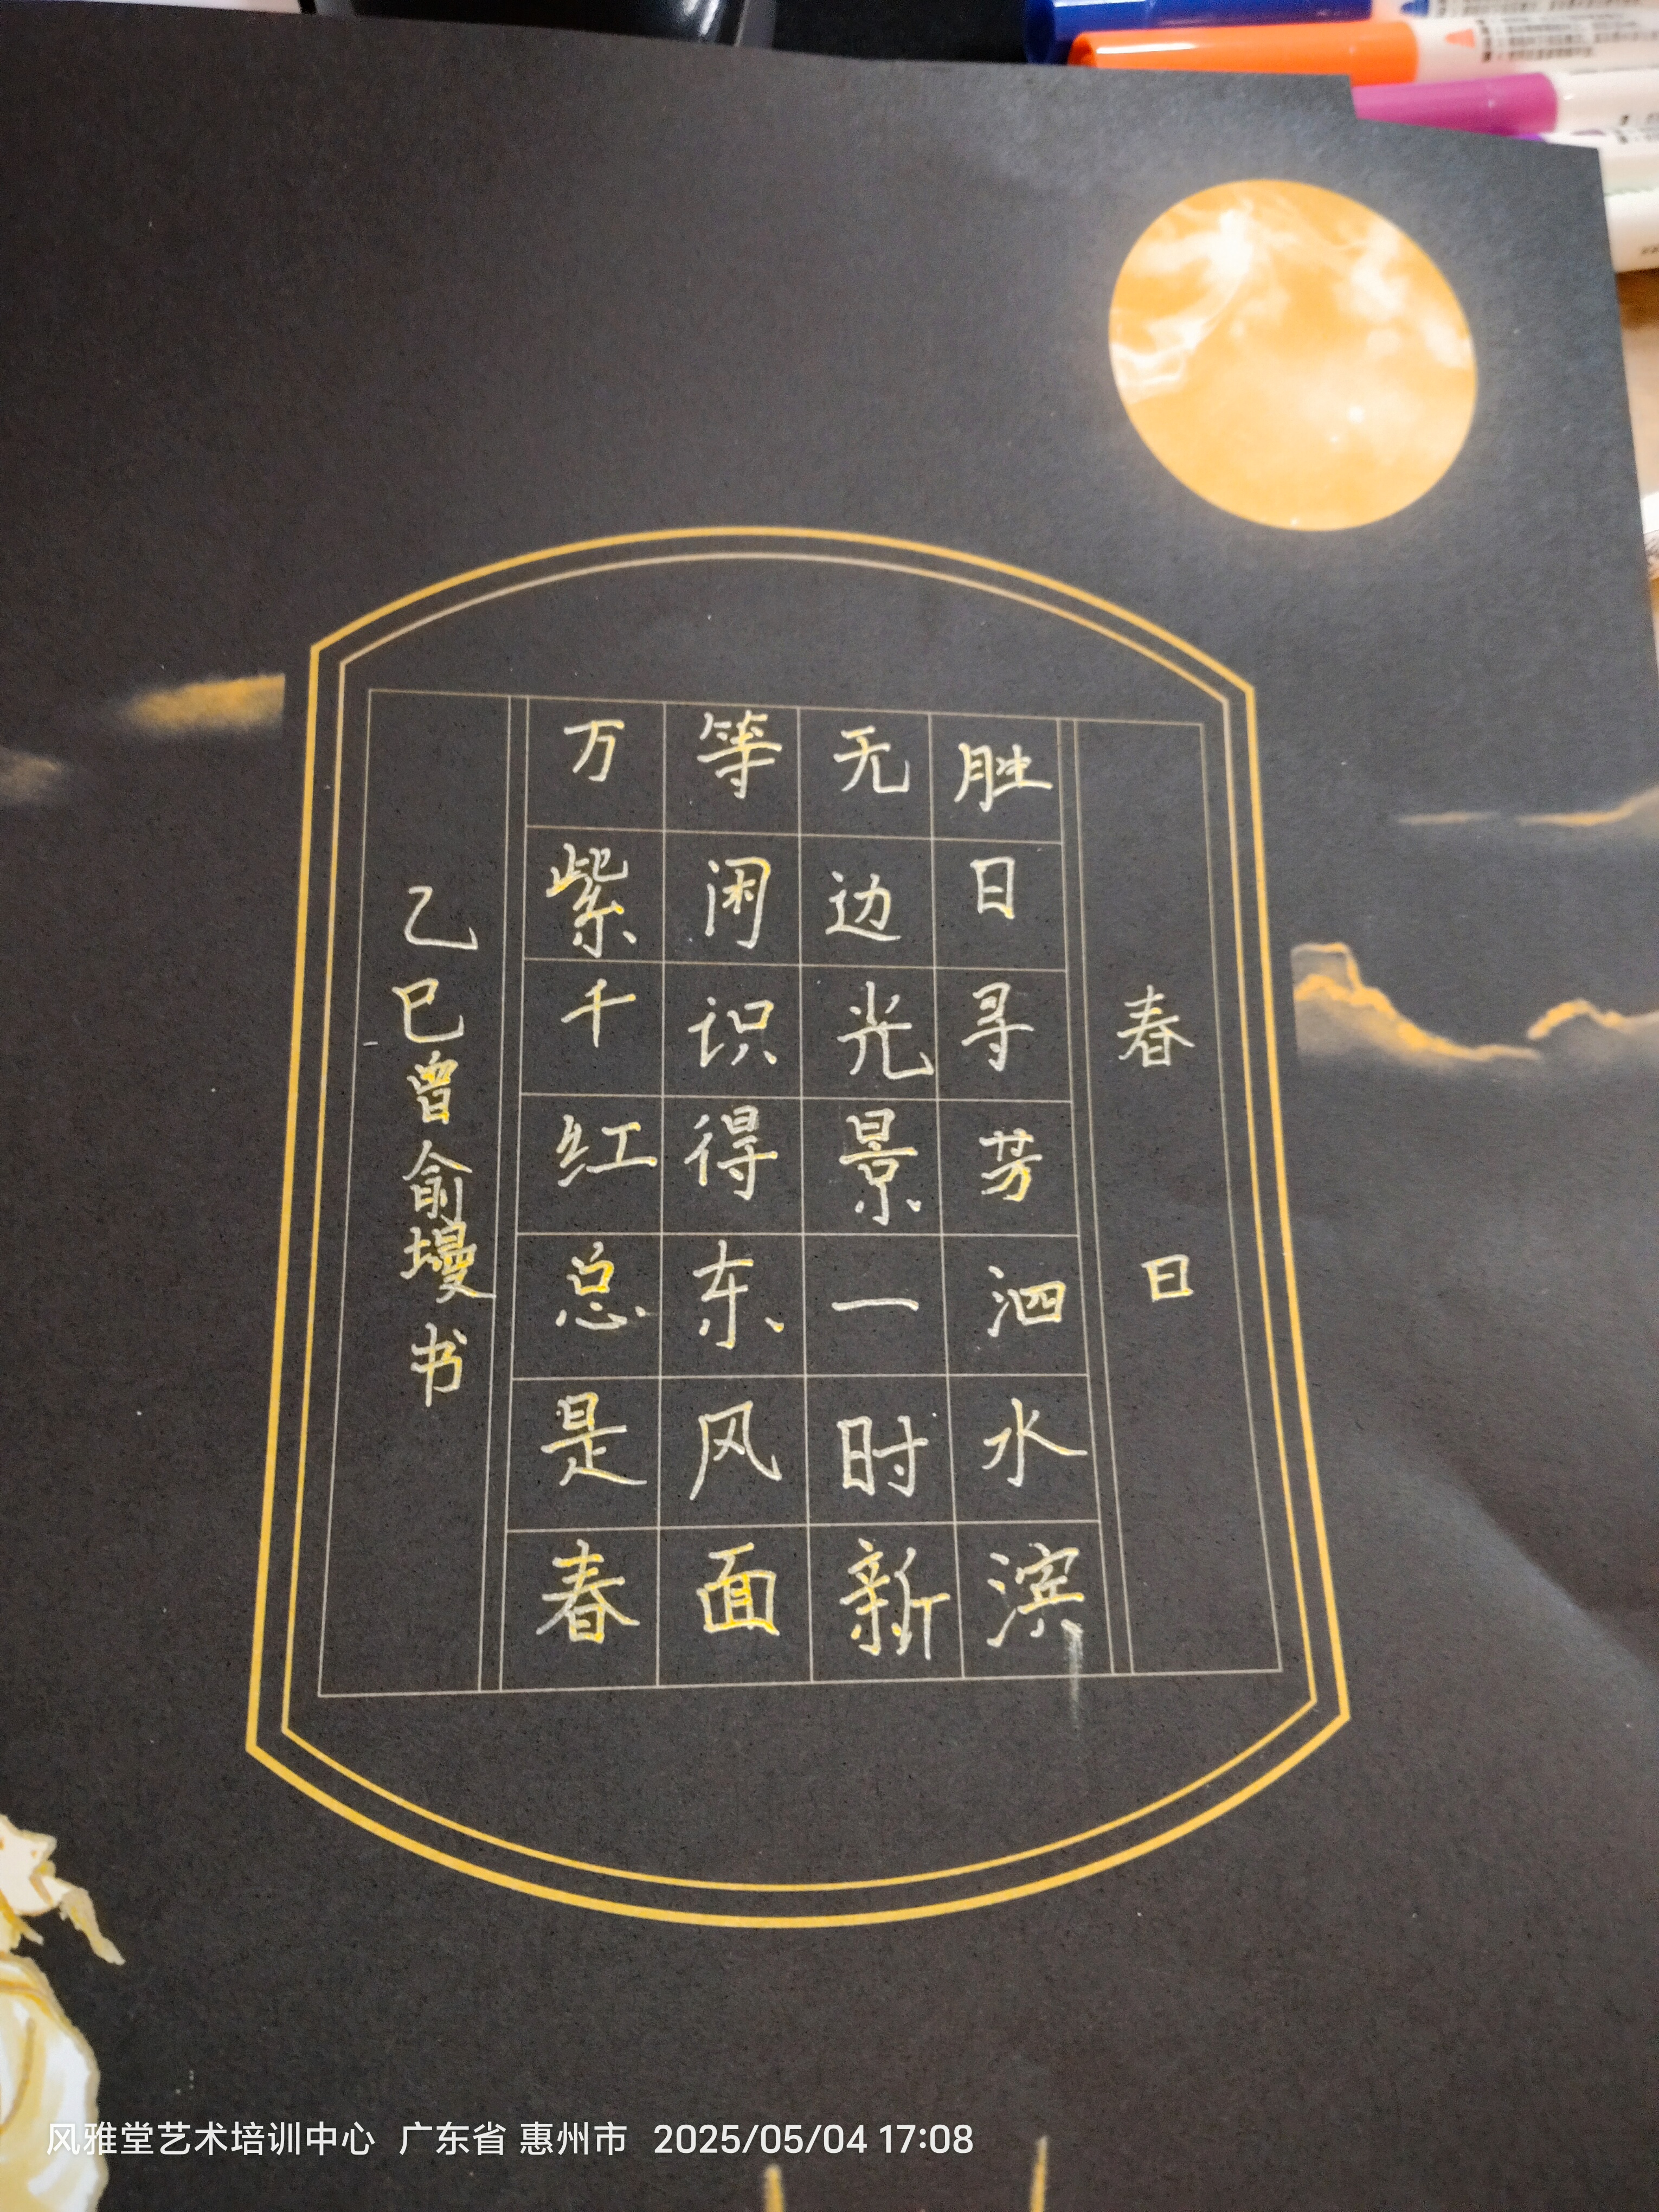 春日
胜日寻芳泗水滨
无边光景一时新
等闲识得东风面
万紫千红总是春
乙巳曾俞墁书
风雅堂艺术培训中心 广东省 惠州市 2025/05/04 17:08